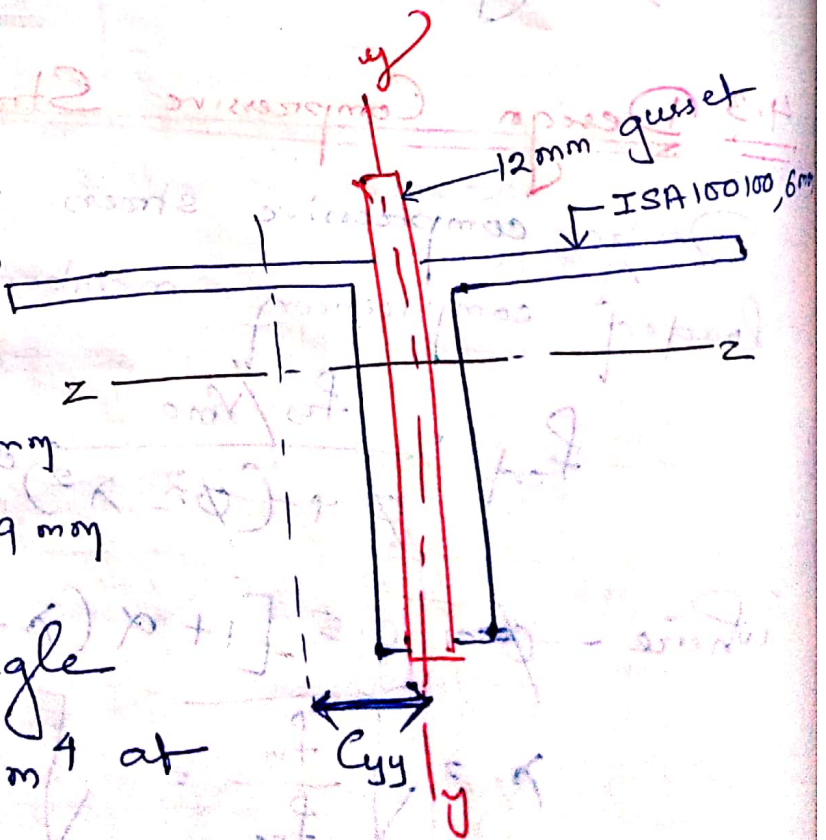 y
12mm gusset
ISA 100100, 6m
z
z
mm
9 mm
gle
m⁴ at
Cyy.
y